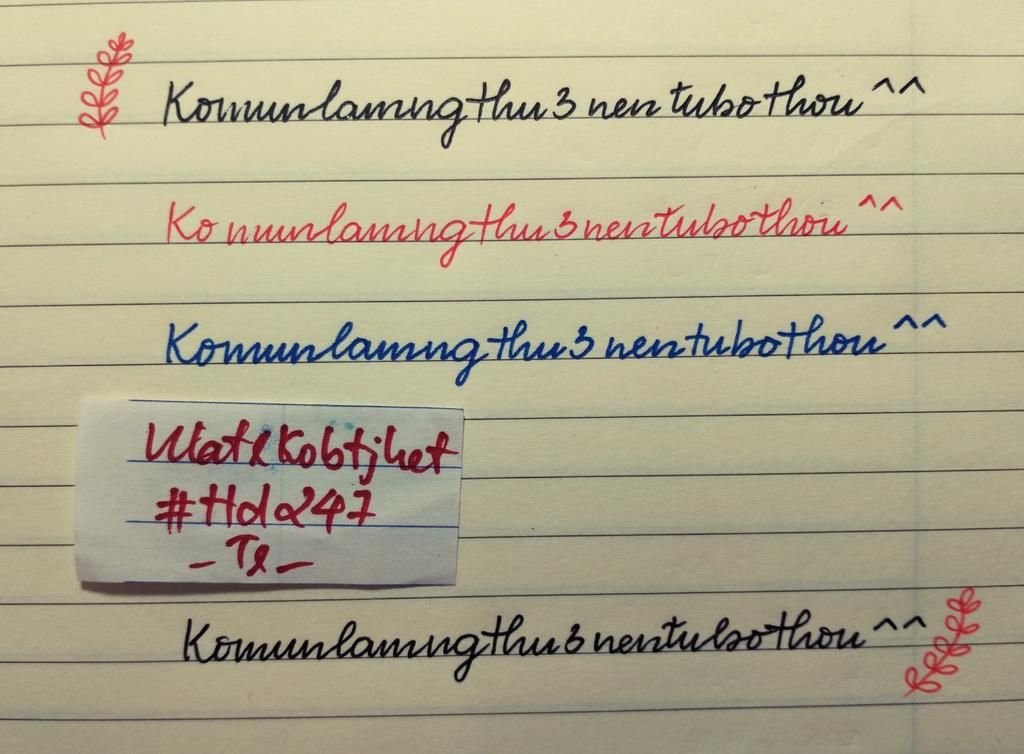 Komunlamngthu3 nen tubo thou ^^
Ko nunlamngthu3nentubothou ^^
Komunlamngthu3 nentubothou ^^
#Hdα247
Komunlamngthu3nentubothou ^^